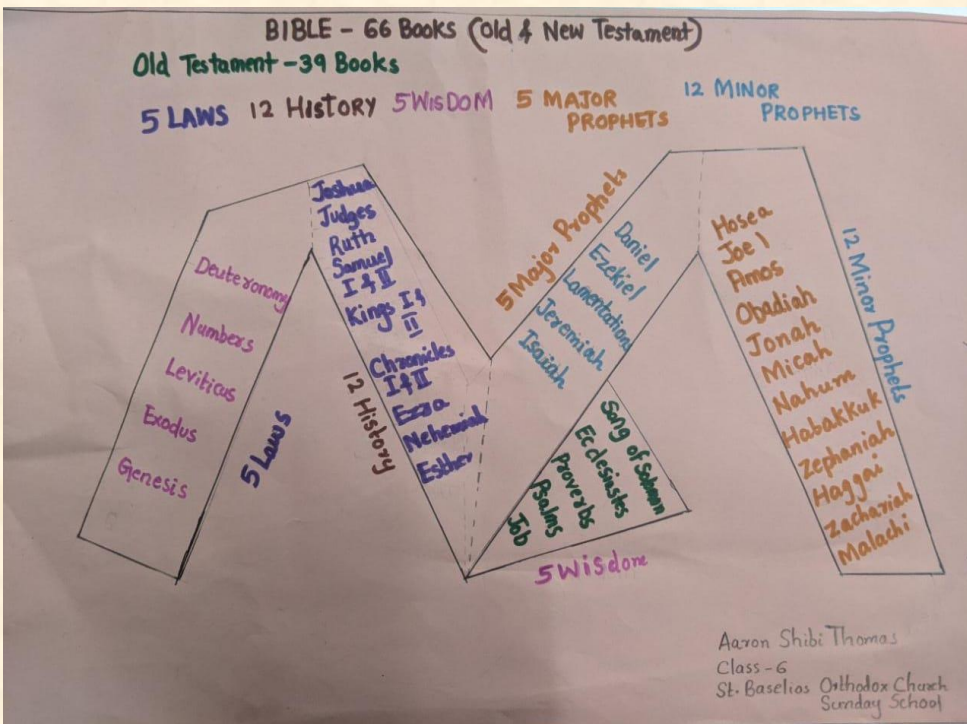 BIBLE - 66 Books (Old & New Testament)
Old Testament - 39 Books
5 LAWS 12 HISTORY 5 WISDOM 5 MAJOR PROPHETS 12 MINOR PROPHETS
Deuteronomy
Numbers
Leviticus
Exodus
Genesis
5 Laws
Joshua
Judges
Ruth
Samuel
I & II
Kings I &
II
Chronicles
I & II
Ezra
Nehemiah
Esther
12 History
5 Major Prophets
Daniel
Ezekiel
Lamentations
Jeremiah
Isaiah
Song of Solomon
Ecclesiastes
Proverbs
Psalms
Job
5 Wisdom
Hosea
Joel
Amos
Obadiah
Jonah
Micah
Nahum
Habakkuk
Zephaniah
Haggai
Zachariah
Malachi
12 Minor Prophets
Aaron Shibi Thomas
Class - 6
St. Baselios Orthodox Church
Sunday School